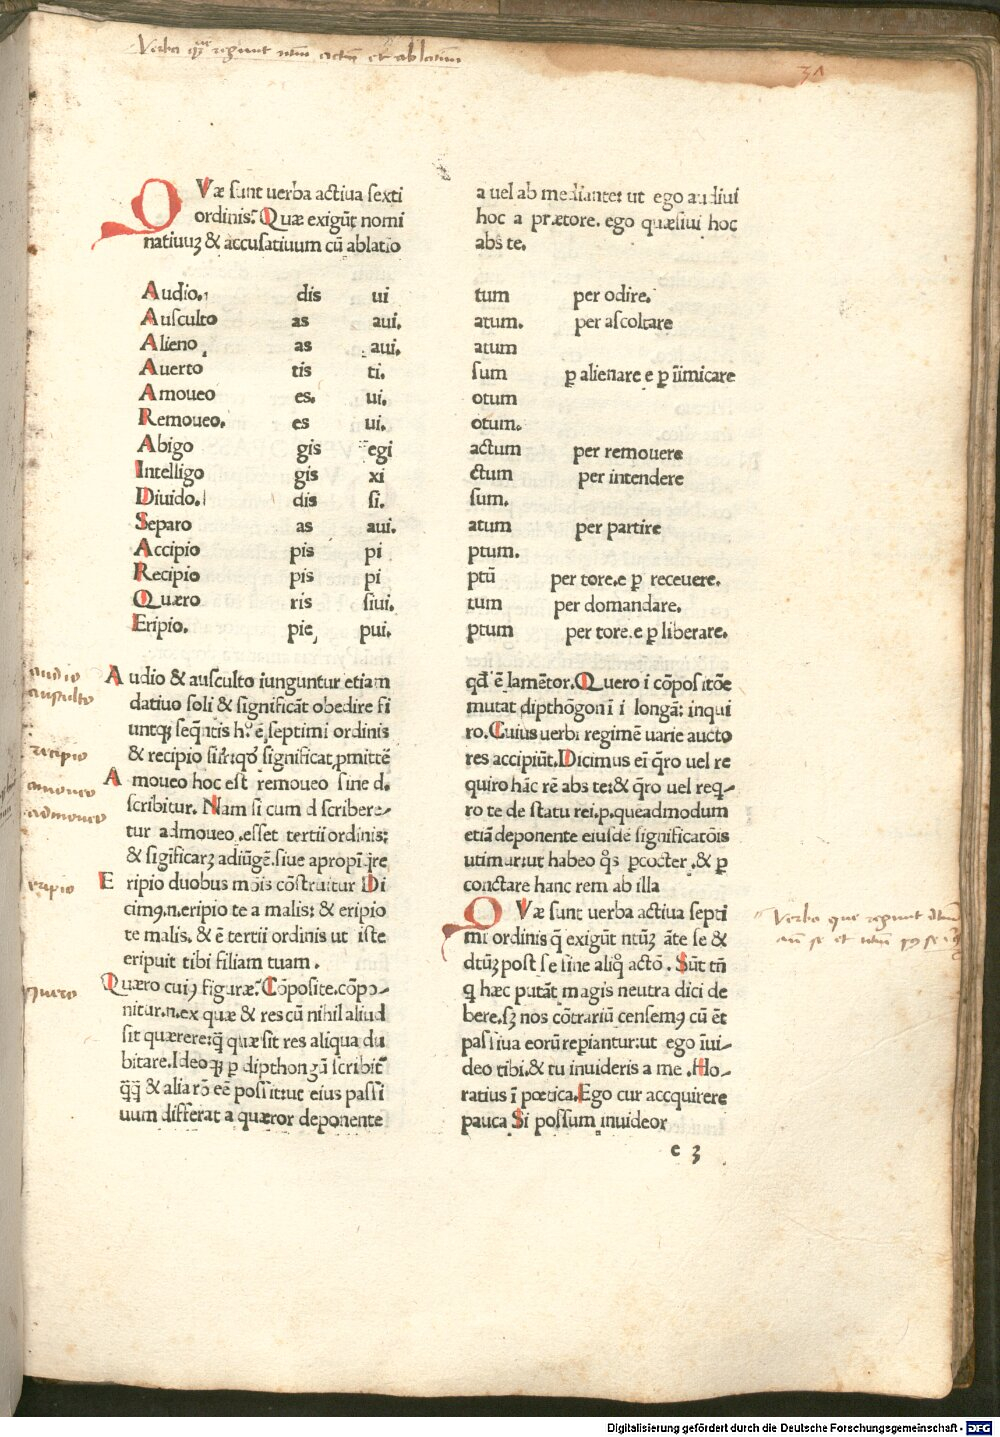 Verba que regunt ntm actm et ablatium
31
QVæ sunt uerba actiua sexti
ordinis? Quæ exigūt nomi
natiuuȝ & accusatiuum cū ablatio
a uel ab mediante: ut ego audiui
hoc a prætore. ego quæsiui hoc
abs te.
Audio. dis ui tum per odire.
Ausculto as aui. atum. per ascoltare
Alieno as aui. atum
Auerto tis ti. sum ꝑ alienare e ꝑ iīmicare
Amoueo es. ui. otum
Remoueo. es ui. otum.
Abigo gis egi actum per remouere
Intelligo gis xi ctum per intendere
Diuido. dis si. sum.
Separo as aui. atum per partire
Accipio pis pi ptum.
Recipio pis pi ptū per tore.e ꝑ receuere.
Quæro ris siui. tum per domandare.
Eripio. pie pui. ptum per tore.e ꝑ liberare.
audio
ausculto
recipio
amoueo
admoueo
eripio
quero
Audio & ausculto iunguntur etiam
datiuo soli & significāt obedire fi
untqꝫ seqn̄tis h.º ē septimi ordinis
& recipio significat ꝓmittē
Amoueo hoc est remoueo sine d.
scribitur. Nam si cum d scribere-
tur admoueo .esset tertii ordinis:
& sigificarꝫ adiūgē.siue apropīq̄re
Eripio duobus mōis cōstruitur Di
cimꝰ.n.eripio te a malis: & eripio
te malis. & ē tertii ordinis ut iste
eripuit tibi filiam tuam.
Quæro cuiꝰ figuræ? Cōposite.cōpo-
nitur.n.ex quæ & res cū nihil aliud
sit quærere:q̄ quæ sit res aliqua du
bitare.Ideoqꝫ ꝑ dipthongū scribit᷑
q̄q̄ & alia rō eē possit:ut eius passi
uum differat a quæror deponente
qđ ē lamētor.Quero i cōpositōe
mutat dipthōgon i i longā: inqui
ro.Cuius uerbi regimē uarie aucto
res accipiūt.Dicimus ei q̄ro uel re
quiro hāc rē abs te:& q̄ro uel req-
ro te de statu rei.p.queadmodum
etiā deponente eiusdē significatōis
utimur:ut habeo q̊s ꝑcōcter .& ꝑ
conctare hanc rem ab illa
QVæ sunt uerba actiua septi
mi ordinis q̄ exigūt ntūꝫ āte se &
dtūꝫ post se sine aliq̊ actō. Sūt tn̄
q hæc putāt magis neutra dici de
bere.sꝫ nos cōtrariū censemꝰ cū ēt
passiua eorū repiantur:ut ego īui-
deo tibi.& tu inuideris a me .Ho-
ratius ī poetica.Ego cur accquirere
pauca Si possum inuideor
c 3
Verba que regunt dtum
Digitalisierung gefördert durch die Deutsche Forschungsgemeinschaft - DFG